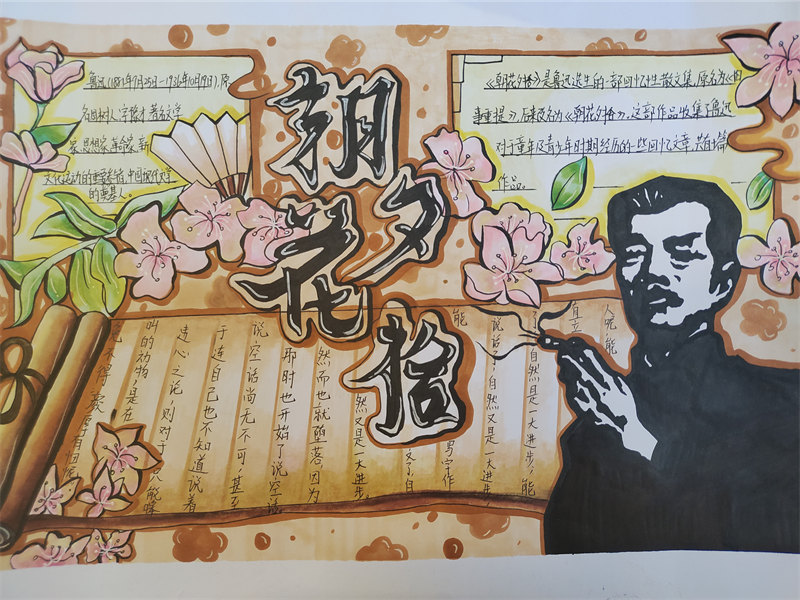 鲁迅(1881年9月25日－1936年10月19日),原
名周樟人,字豫才,著名文学
家、思想家、革命家、新
文化运动的重要参与者,中国现代文学
的奠基人。
朝花夕拾
《朝花夕拾》是鲁迅先生的一部回忆性散文集,原名为《旧
事重提》,后来改名为《朝花夕拾》,这部作品收集了鲁迅
对于童年及青少年时期经历的一些回忆文章,共有十篇
作品。
人呢,能
直立
了,自然是一大进步;能
说话了,自然又是一大进步;
能
写字作
文了,自
然又是一大进步。
然而也就堕落,因为
那时也开始了说空话。
说空话尚无不可,甚至
于连自己也不知道说着
违心之论,则对于只能嗥
叫的动物,是在
免不得